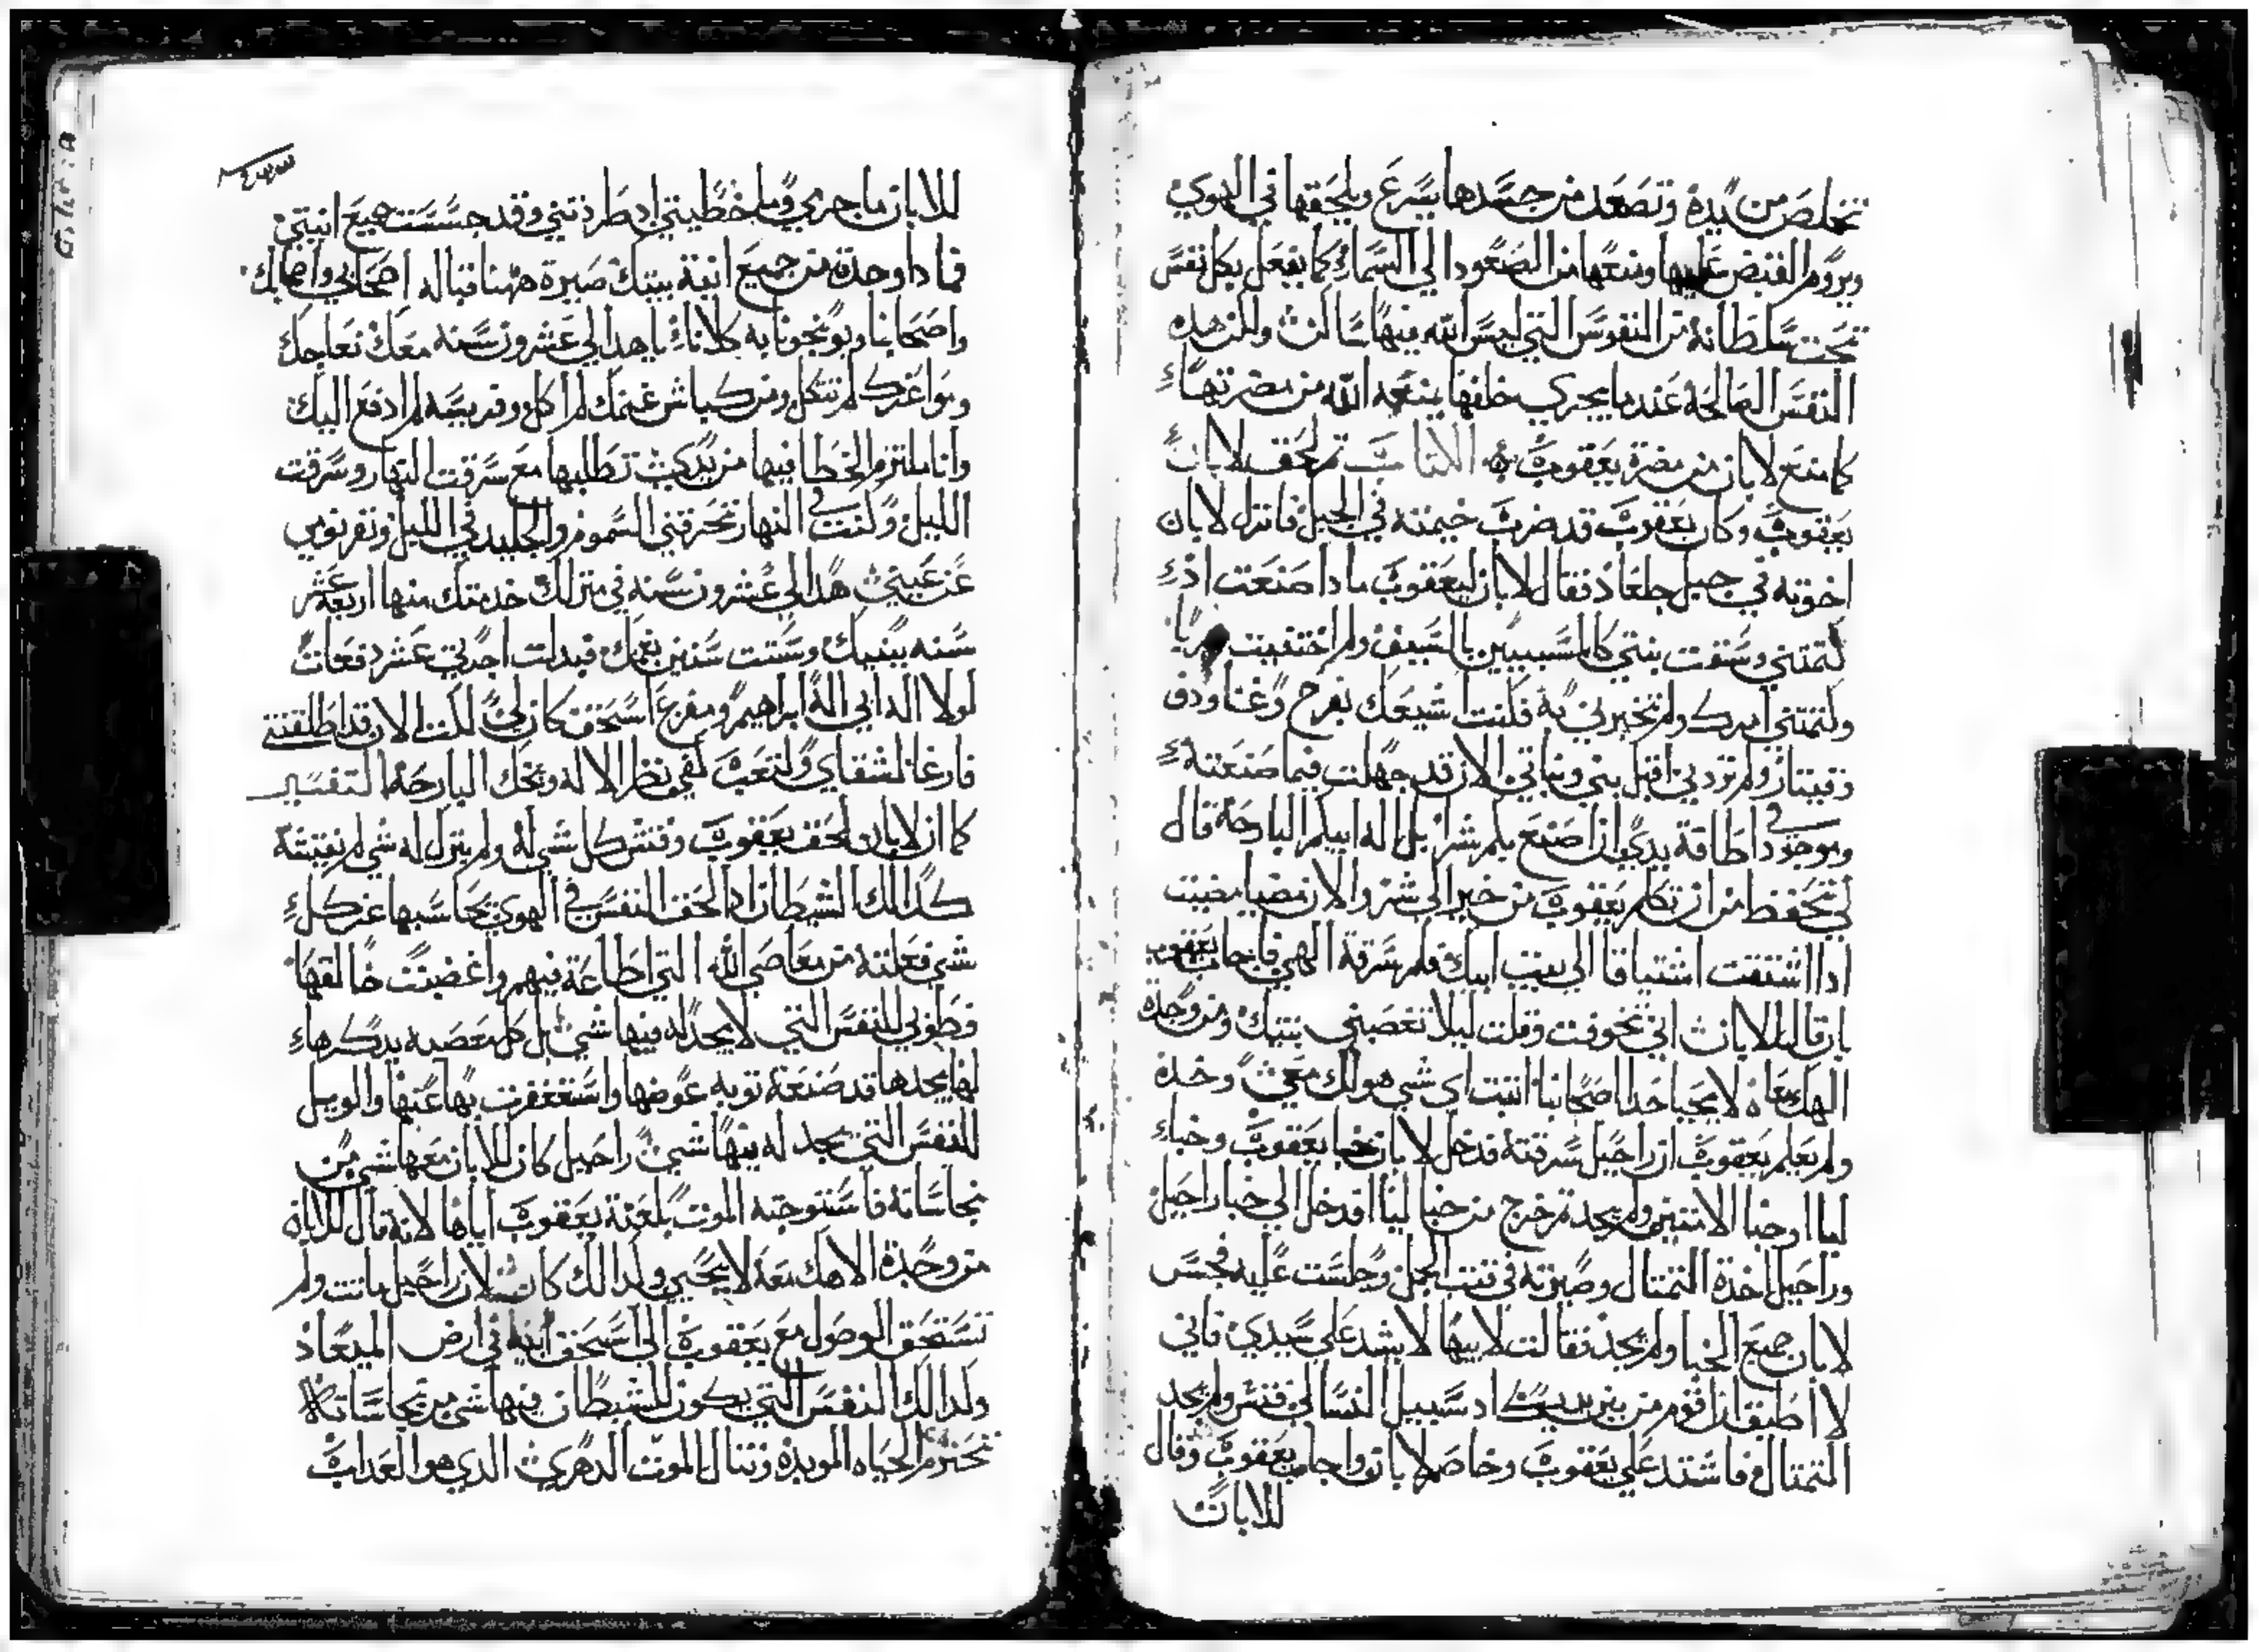 تخلص من يده وتصعد من جسدها يسرع ويلحقها في الهوي
ويروم القبض عليها ومنعها من الصعود الي السماء كما يفعل بكل نفس
تحت سلطانه من النفوس التي ليس الله فيها ساكن ولكن هذه
النفس الصالحه عندما يجري خلفها يمنعه الله من مضرتها
كما منع لابان من مضرة يعقوب ثم لحق لابان
يعقوب وكان يعقوب قد ضرب خيمته في الجبل فانزل لابان
اخوته في جبل جلعاد فقال لابان ليعقوب مادا صنعت اد
كتمتني وسقت بنتي كالمسبيين بالسيف ولم اختفيت
وكتمتني امرك ولم تخبرني به فكنت اشيعك بفرح وغنا ودف
وقيتار ولم تردني اقبل بني وبناتي الان قد جهلت فيما صنعته
وموجود في اطاقة يدي ان اصنع بكم شرا بل اله ابيكم البارحة قال
لي تحفظ من ان تكلم يعقوب من خير الي شر والان مضيا مضيت
ادا اشتقت اشتياقا الي بيت ابيك فلم سرقة الهي فاجاب يعقوب
بان قال للابان اني تخوفت وقلت ليلا تغصبني بنتيك ومن وجدة
الهك معاه لا يحيا حدا اصحابنا اتبت اي شي هو لك معي وخده
ولم يعلم يعقوب ان راحيل سرقته فدخل لابان خبا يعقوب وخبا
ليا اوخبا الامتين ولم يجد ثم خرج من خبا ليا افدخل الي خبا راحيل
وراحيل اخدة التمتال وصيرته في قتب الجمل وجلست عليه فجس
لابان جميع الخبا ولم يجد فقالت لابيها لا يشد علي سيدي فاني
لا اطيق ان اقوم من بين يديك اد سبيل النسا لي ففتش ولم يجد
التمتال فاشتد علي يعقوب وخاصم لابان واجاب يعقوب وقال
للابان
للابان ما جرمي وما خطيتي اد طردتني وقد جسست جميع انيتي
فما دا وجدة من جميع انية بيتك صيرة ههنا قباله اصحابي واصحابك
واصحابنا ويوبخونا به كلانا يا هدا لي عشرون سنه معك نعاجك
ومواعزك لم تتكل ومن كباش غنمك لم اكل وفريسه لم ادفع اليك
وانا ملتزم الخطا فيها من يدي كنت تطلبها مع سرقت النهار وسرقت
الليل وكنت في النهار تحرقني السموم والجليد في الليل ونفر نومي
عن عيني هدا لي عشرون سنه في منزلك خدمتك منها اربعة عشر
سنه ببنتيك وستت سنين بغنمك فبدلت اجرتي عشر دفعات
لولا اله ابي اله ابراهيم ومفزع اسحق كان لي لكنت الان قد اطلقتني
فارغا لشقاي ولتعب كفي نظر الاله وبخك البارحه التفسير
كما ان لابان لحق يعقوب وفتش كل شي له ولم يترك له شي لم يفتشه
كدالك الشيطان ادا لحق النفس في الهوي يحاسبها عن كل
شي فعلته من معاصي الله التي اطاعة فيهم واغضبت خالقها
فطوبي للنفس التي لا يجد له فيها شي بل كل معصيه يدكرها
لها يجدها قد صنعة توبه عوضها واستغفرت بها عنها والويل
للنفس التي يجد له فيها شي راحيل كان للابان معها شي من
نجاساته فاستوجبه الموت بلعنة يعقوب اياها لانه قال للابان
من وجدة الاهك معه لا يحيي ولدالك كان لان راحيل ماتت ولم
تستحق الوصول مع يعقوب الي اسحق ابيه في ارض الميعاد
ولدالك النفس التي يكون للشيطان فيها شي من نجاساته
تحترم الحياه الموبده وتنال الموت الدهري الدي هو العداب